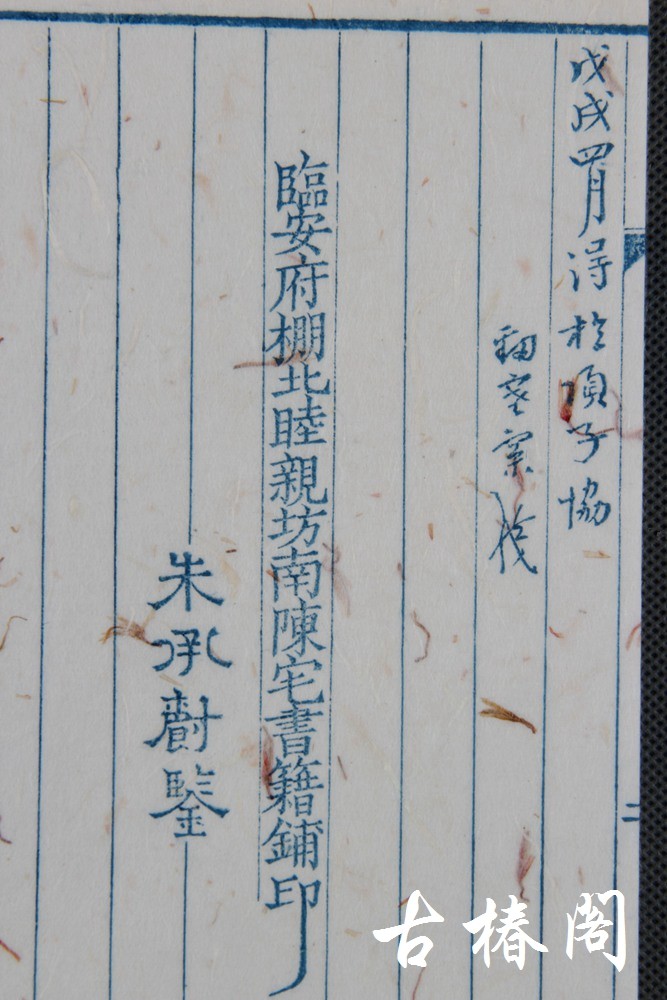 戊戌四月得於項子協
臨安府棚北睦親坊南陳宅書籍鋪印
朱承爵鑒
二
古椿閣